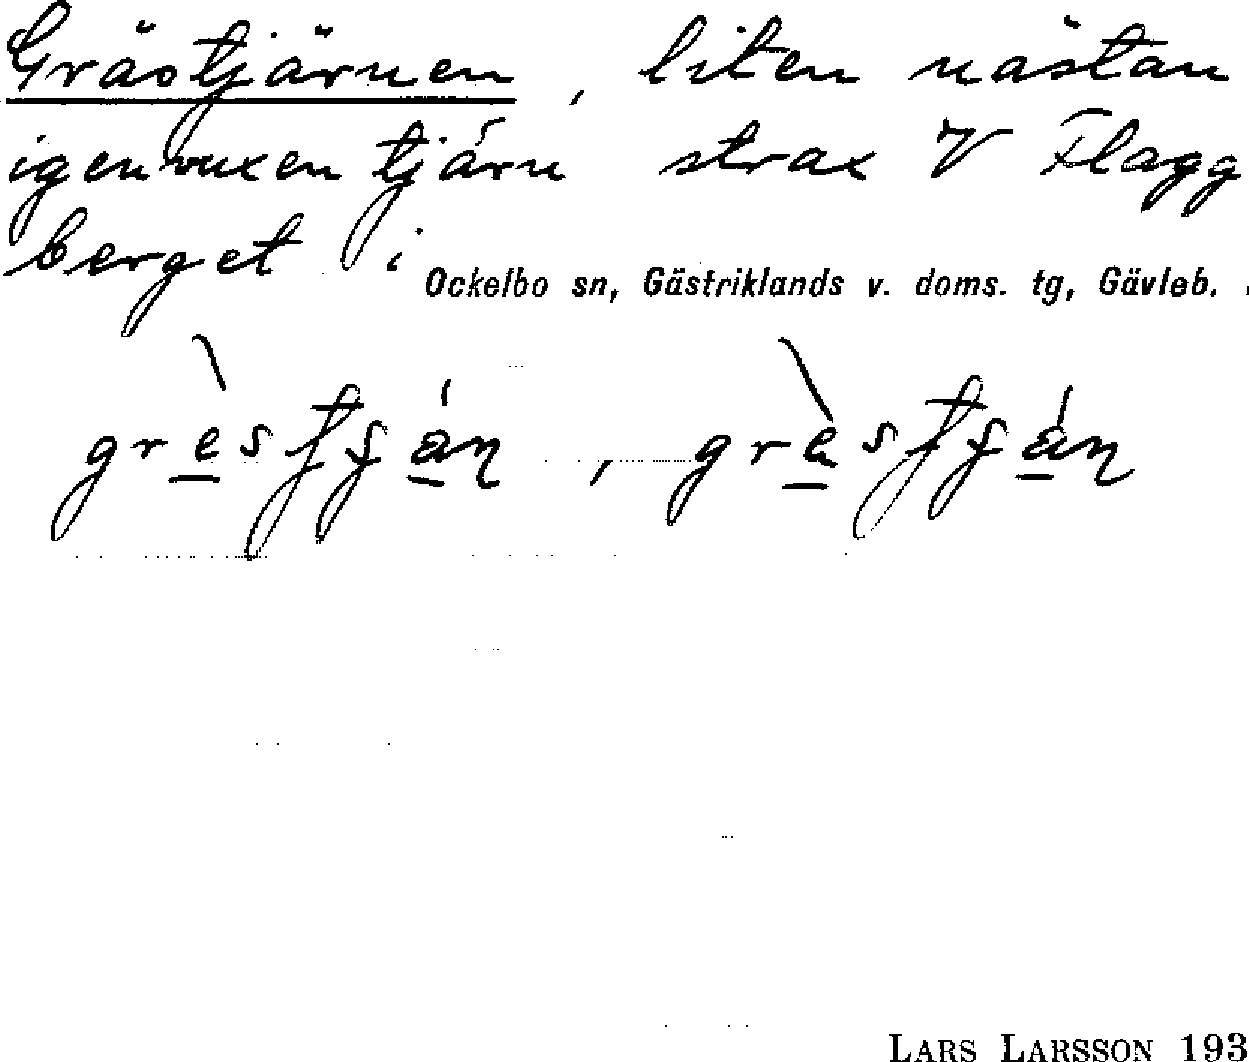 Grästjärnen, liten nästan
igenvuxen tjärn strax V Flagg
berget i
Ockelbo sn, Gästriklands v. doms. tg, Gävleb.
LARS LARSSON 193